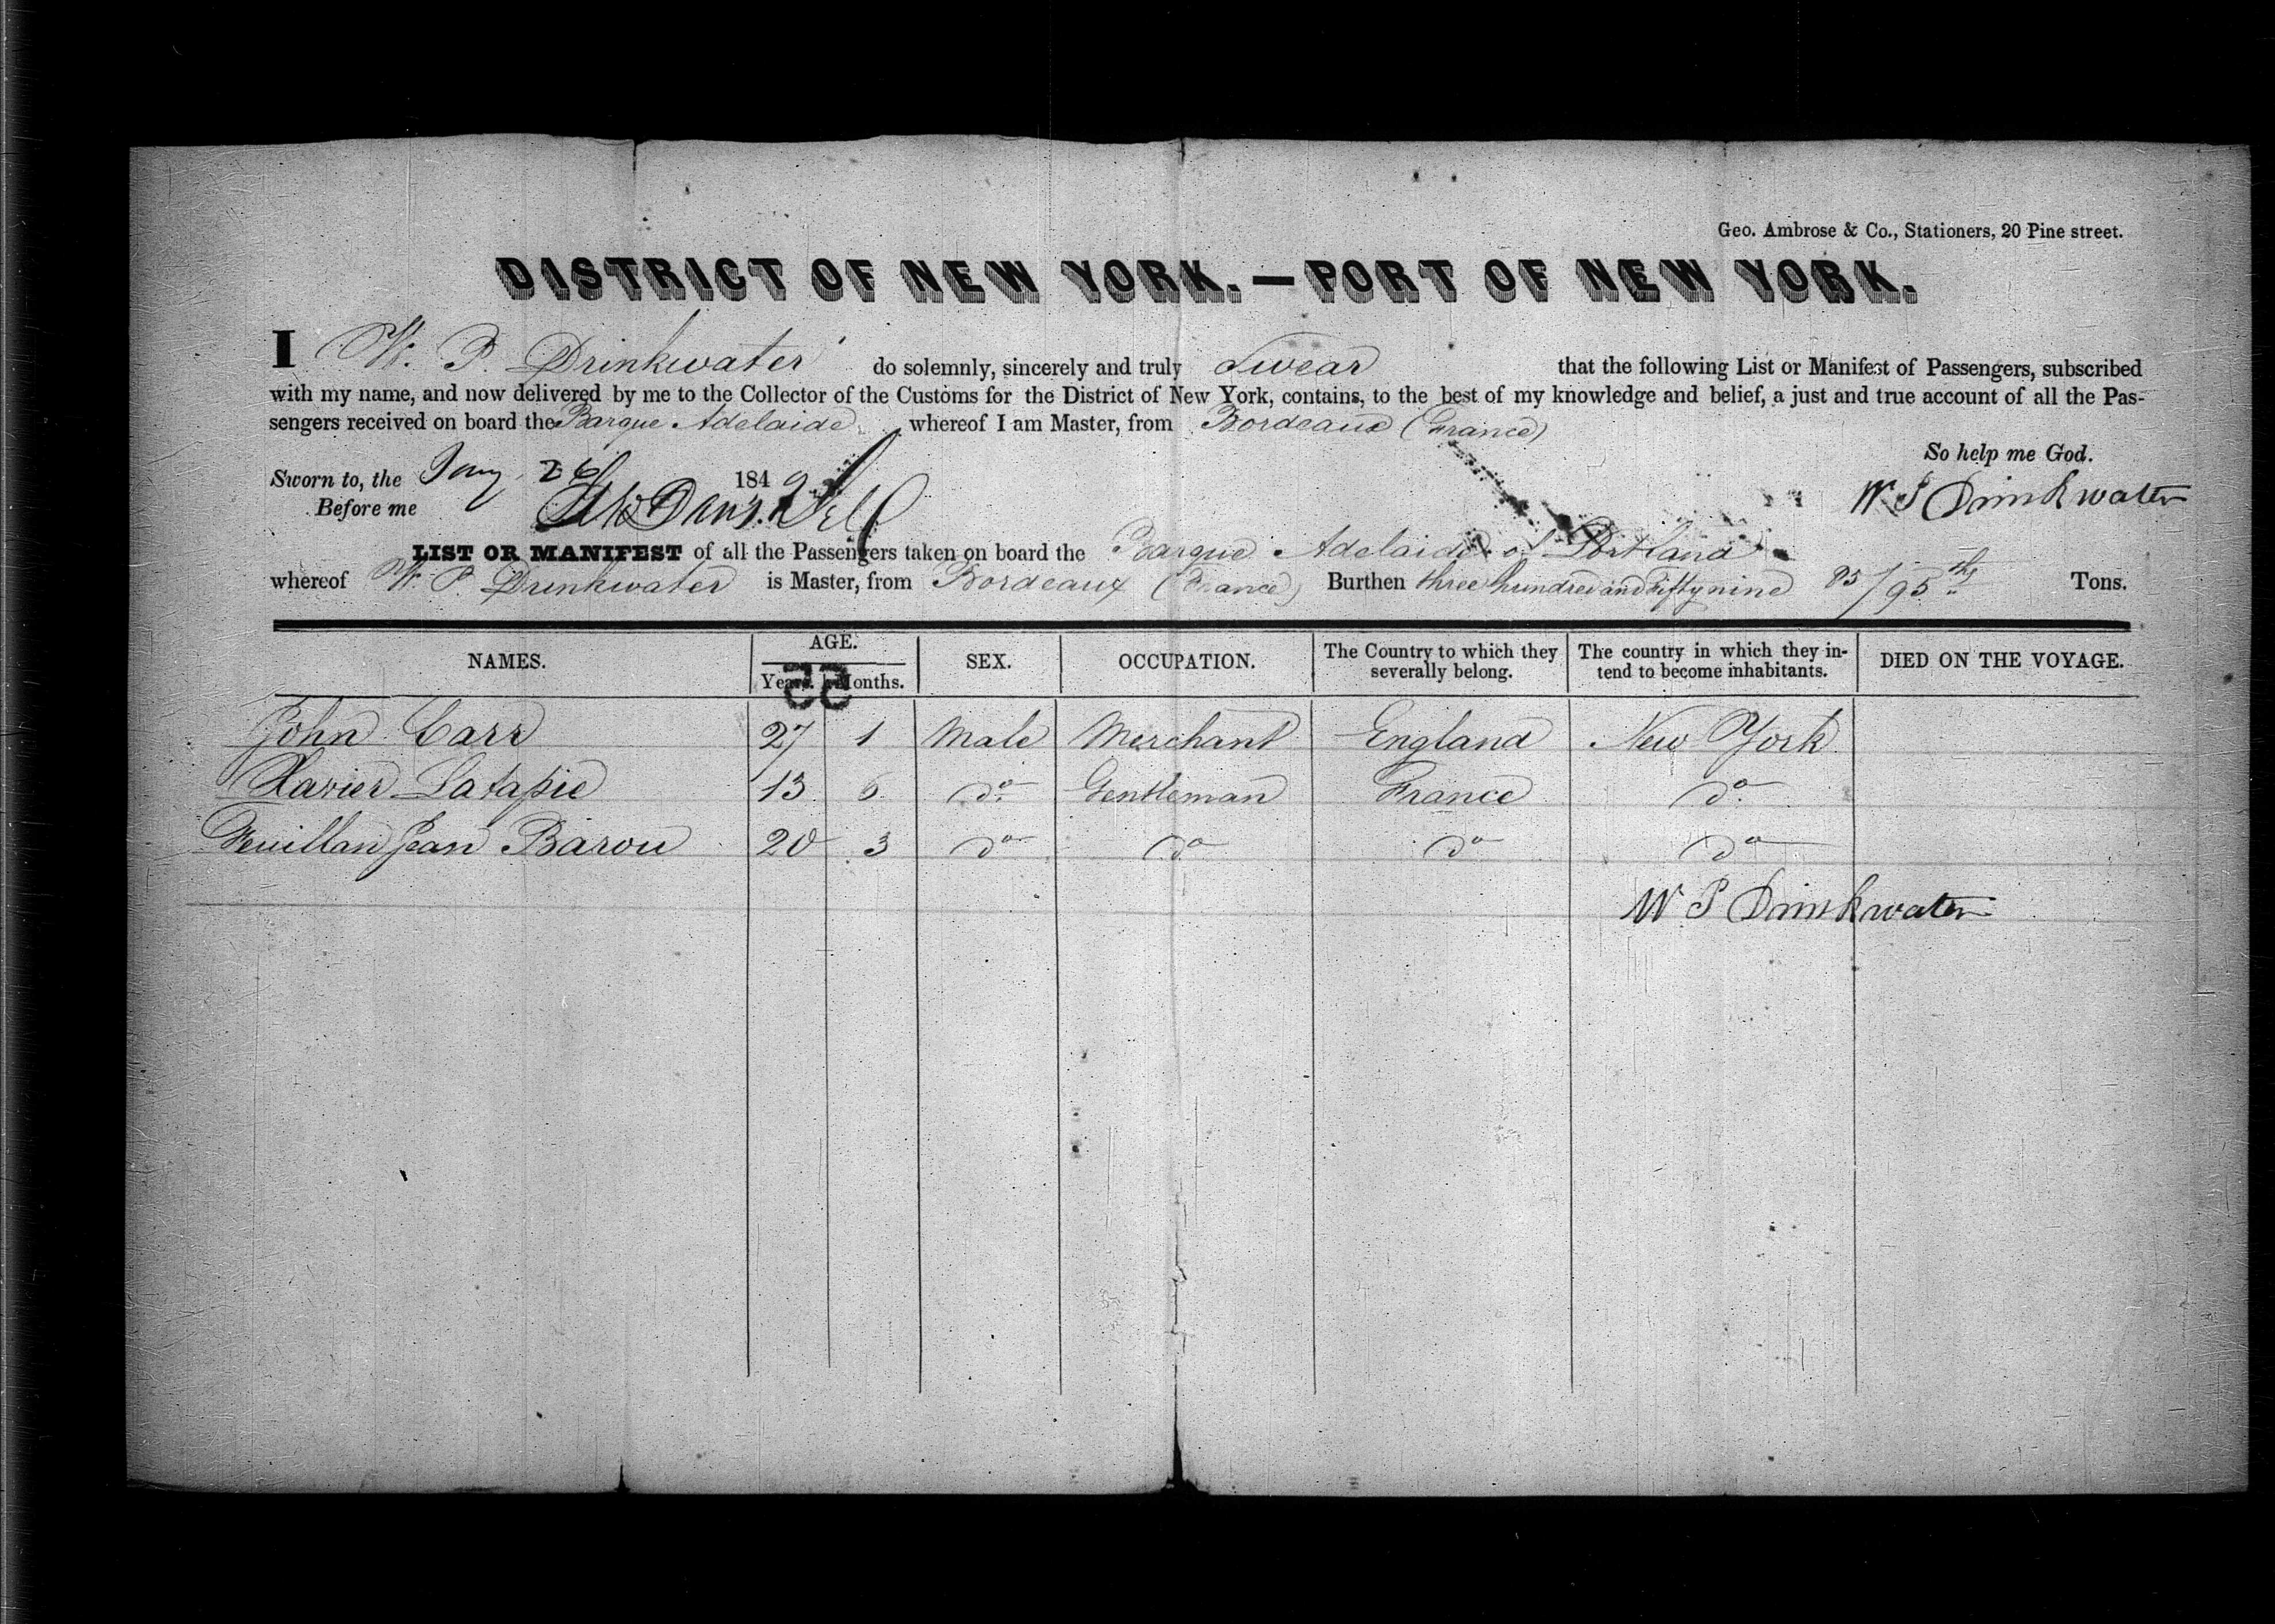 Geo. Ambrose & Co., Stationers, 20 Pine street.
DISTRICT OF NEW YORK.—PORT OF NEW YORK.
I W. P. Drinkwater do solemnly, sincerely and truly Swear that the following List or Manifest of Passengers, subscribed
with my name, and now delivered by me to the Collector of the Customs for the District of New York, contains, to the best of my knowledge and belief, a just and true account of all the Pas-
sengers received on board the Barque Adelaide whereof I am Master, from Bordeaux (France)
So help me God.
Sworn to, the Jany 26 1849
Before me
W P Drinkwater
LIST OR MANIFEST of all the Passengers taken on board the Barque Adelaide of Portland
whereof W. P. Drinkwater is Master, from Bordeaux (France) Burthen three hundred and Fifty nine 85/95ths Tons.
NAMES. AGE. Years. Months. SEX. OCCUPATION. The Country to which they severally belong. The country in which they in-tend to become inhabitants. DIED ON THE VOYAGE.
55
John Carr 27 1 Male Merchant England New York
Xavier Latapie 13 6 do Gentleman France do
Feuillan Jean Barou 20 3 do do do do
W P Drinkwater